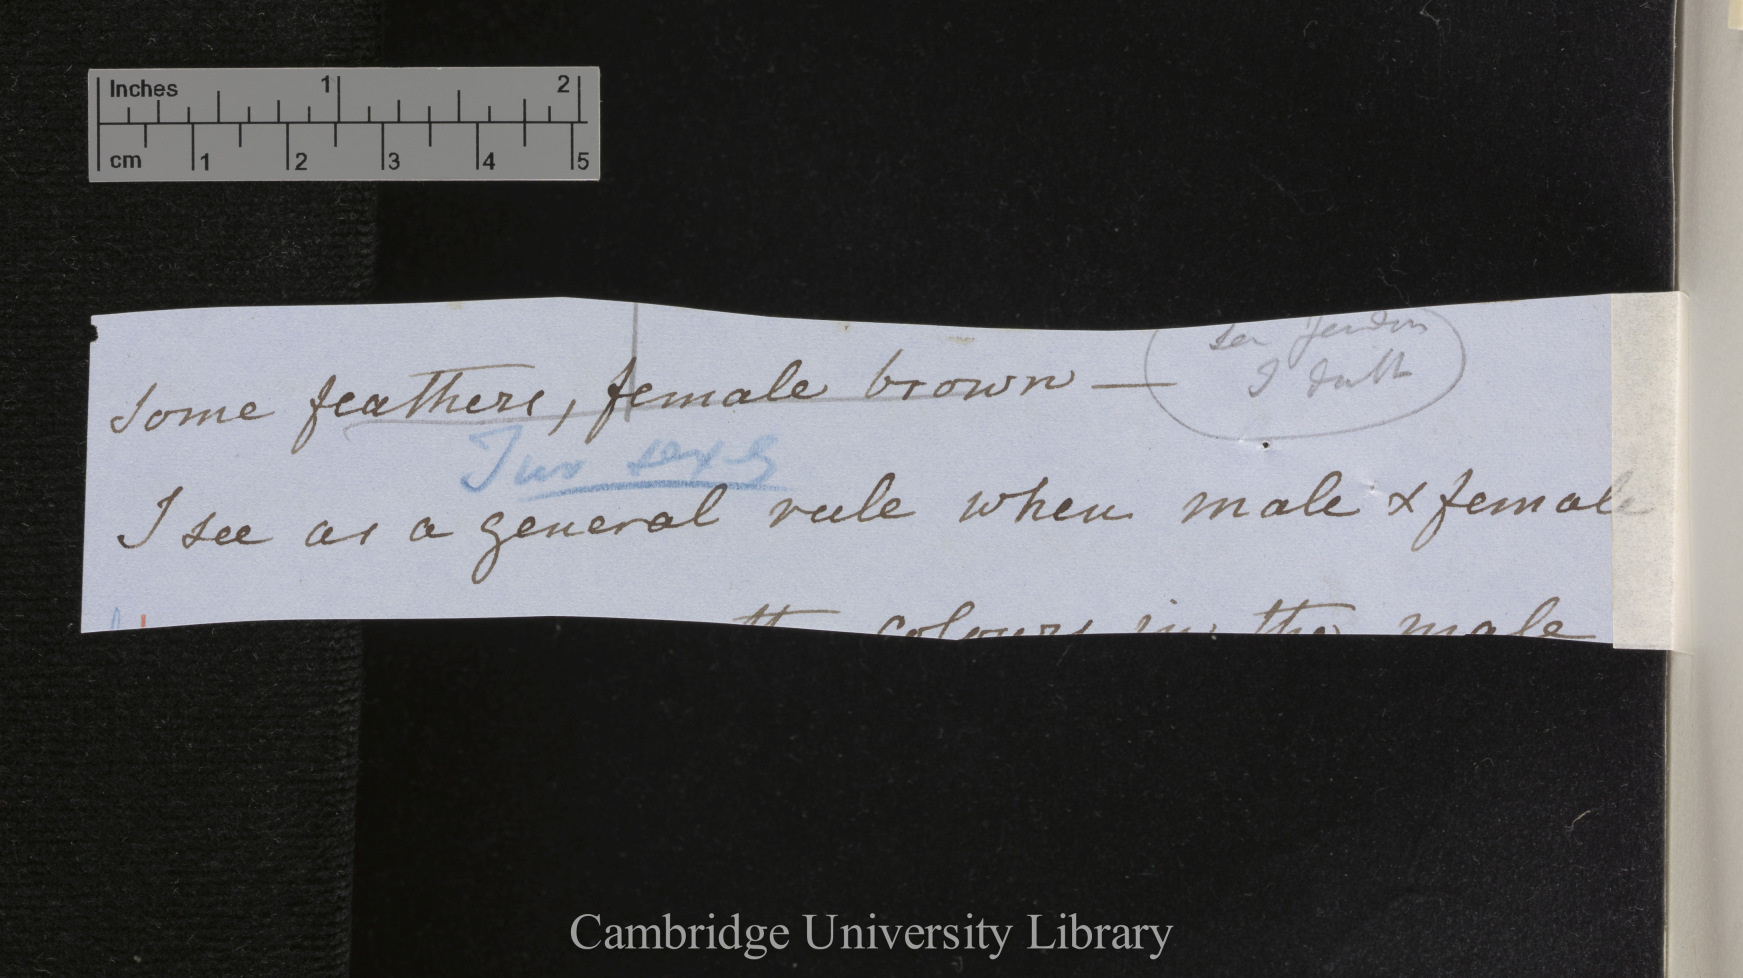 Inches 1 2
cm 1 2 3 4 5
some feathers, female brown —
I doubt
Two sexes
I see as a general rule when male & female
colours in the male
Cambridge University Library